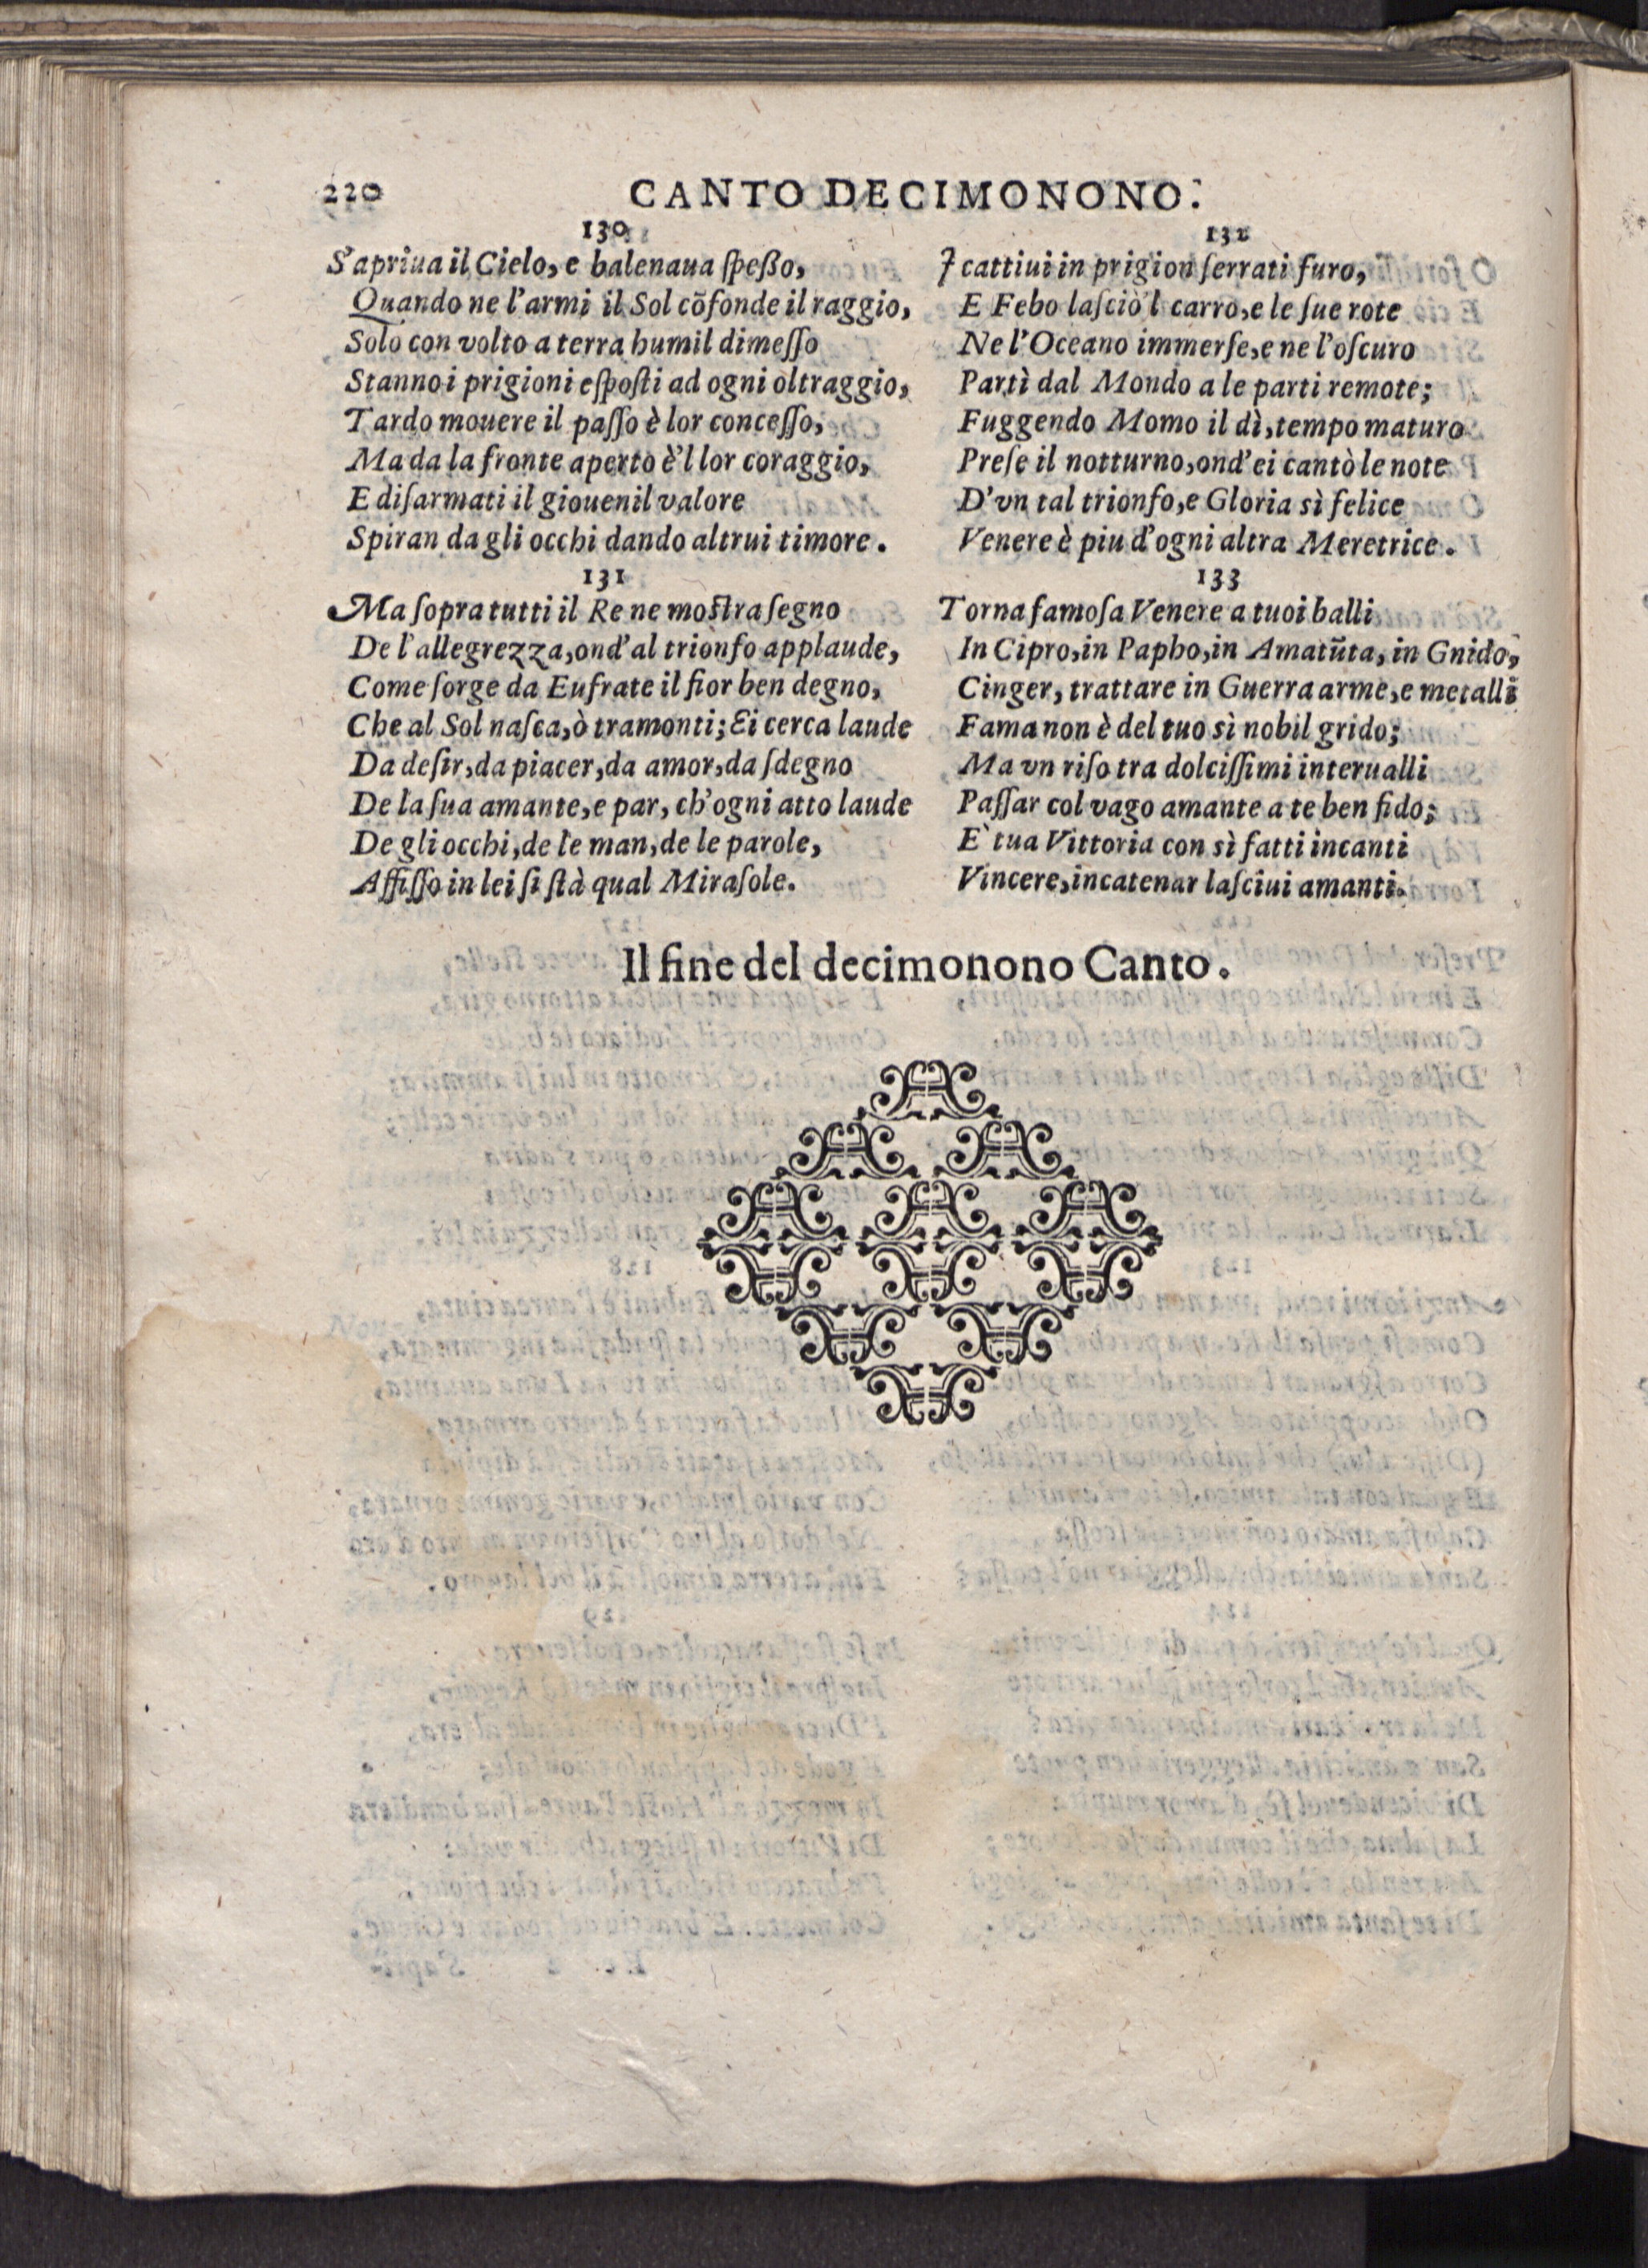 220
CANTO DECIMONONO.
130
S'apriua il Cielo, e balenaua ſpeßo,
Quando ne l'armi il Sol cõfonde il raggio,
Solo con volto a terra humil dimeſſo
Stanno i prigioni eſpoſti ad ogni oltraggio,
Tardo mouere il paſſo è lor conceſſo,
Ma da la fronte aperto è'l lor coraggio,
E diſarmati il giouenil valore
Spiran da gli occhi dando altrui timore.
131
Ma ſopra tutti il Re ne moſtra ſegno
De l'allegrezza, ond'al trionfo applaude,
Come ſorge da Eufrate il fior ben degno,
Che al Sol naſca, ò tramonti; Ei cerca laude
Da deſir, da piacer, da amor, da ſdegno
De la ſua amante, e par, ch'ogni atto laude
De gli occhi, de le man, de le parole,
Affiſſo in lei ſi ſtà qual Miraſole.
132
I cattiui in prigion ſerrati furo,
E Febo laſciò'l carro, e le ſue rote
Ne l'Oceano immerſe, e ne l'oſcuro
Partì dal Mondo a le parti remote;
Fuggendo Momo il dì, tempo maturo
Preſe il notturno, ond'ei cantò le note
D'vn tal trionfo, e Gloria sì felice
Venere è piu d'ogni altra Meretrice.
133
Torna famoſa Venere a tuoi balli
In Cipro, in Papho, in Amatũta, in Gnido,
Cinger, trattare in Guerra arme, e metalli
Fama non è del tuo sì nobil grido;
Ma vn riſo tra dolciſſimi interualli
Paſſar col vago amante a te ben fido;
E' tua Vittoria con sì fatti incanti
Vincere, incatenar laſciui amanti.
Il fine del decimonono Canto.